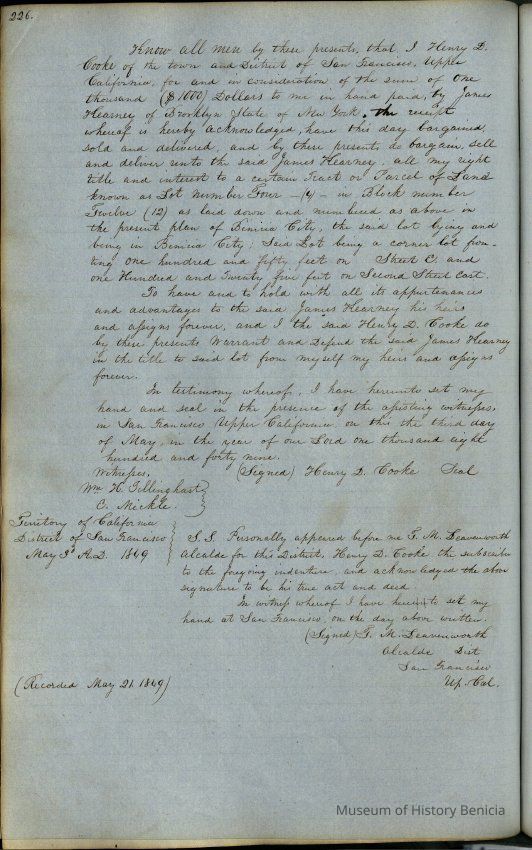 226.
Know all men by these presents, that, I Henry D.
Cooke of the town and District of San Francisco, Upper
California, for and in consideration of the sum of One
thousand ($1000) Dollars to me in hand paid, by James
Hearney of Brooklyn State of New York, the receipt
whereof is hereby acknowledged, have this day bargained,
sold and delivered, and by these presents do bargain, sell
and deliver unto the said James Hearney, all my right
title and interest to a certain Tract or Parcel of Land
known as Lot number Four —(4)— in Block number
Twelve (12) as laid down and numbered as above in
the present plan of Benicia City, the said lot lying and
being in Benicia City; Said Lot being a corner lot fron-
ting one hundred and fifty feet on Street C. and
one Hundred and Twenty five feet on Second Street East.
To have and to hold with all its appurtenances
and advantages to the said James Hearney his heirs
and assigns forever, and I the said Henry D. Cooke do
by these presents Warrant and Defend the said James Hearney
in the title to said lot from myself my heirs and assigns
forever.
In testimony whereof, I have hereunto set my
hand and seal in the presence of the assisting witnesses,
in San Francisco Upper California, on this the third day
of May, in the year of our Lord one thousand eight
hundred and forty nine.
Witnesses. (Signed) Henry D. Cooke Seal
Wm H. Tillinghast
C. Meckle.
Territory of California
District of San Francisco
May 3d A.D. 1849
S.S. Personally appeared before me T. M. Leavenworth
Alcalde for this District, Henry D. Cooke the subscriber
to the foregoing indenture, and acknowledged the above
signature to be his true act and deed.
In witness whereof I have hereunto set my
hand at San Francisco, on the day above written.
(Signed) T. M. Leavenworth
Alcalde Dist
San Francisco
Up. Cal.
(Recorded May 21. 1849)
Museum of History Benicia